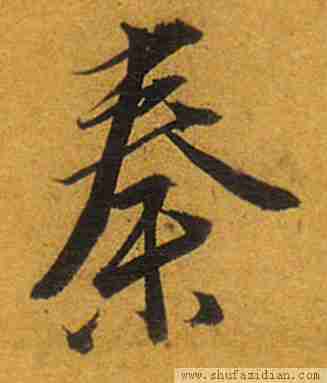 秦
www.shufazidian.com